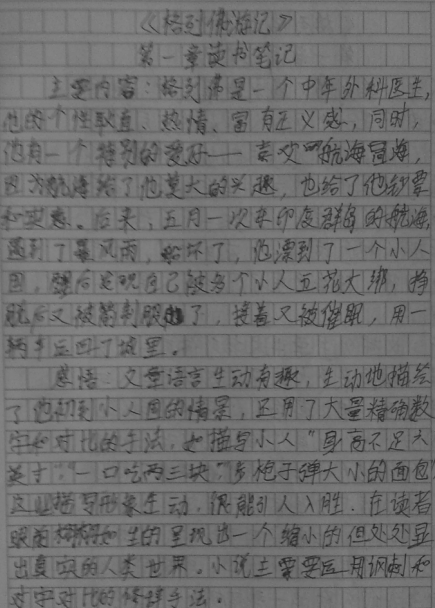 《格列佛游记》
第一章读书笔记
主要内容：格列佛是一个中年外科医生，
他的个性耿直、热情、富有正义感，同时，
他有一个特别的爱好——喜欢航海冒险，
因为航海给了他莫大的兴趣，也给了他钞票
和实惠。后来，五月一次来印度群岛的航海，
遇到了暴风雨，船坏了，他漂到了一个小人
国，醒后发现自己被多个小人五花大绑，挣
脱后又被箭制服了，接着又被催眠，用一
辆车运回了城里。
感悟：文章语言生动有趣，生动地描绘
了他初到小人国的情景，还用了大量精确数
字和对比的手法，如描写小人“身高不足六
英寸”“一口吃两三块”“步枪子弹大小的面包”
这些描写形象生动，很能引人入胜，在读者
眼前栩栩如生的呈现出一个缩小的但处处显
出真实的人类世界。小说主要要运用讽刺和
对字对比的修辞手法。